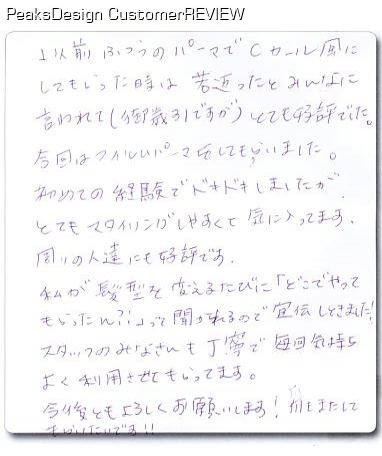 PeaksDesign CustomerREVIEW
以前ふつうのパーマでCカール風に
してもらった時は若返ったとみんなに
言われて(御歳31ですが)とても好評でした。
今回はツイルパーマをしてもらいました。
初めての経験でドキドキしましたが、
とてもスタイリングしやすくて気に入ってます。
周りの人達にも好評です。
私が髪型を変えるたびに「どこでやって
もらったん?!」って聞かれるので宣伝しときました!
スタッフのみなさんも丁寧で毎回気持ち
よく利用させてもらってます。
今後ともよろしくお願いします! またして
もらいたいです!!